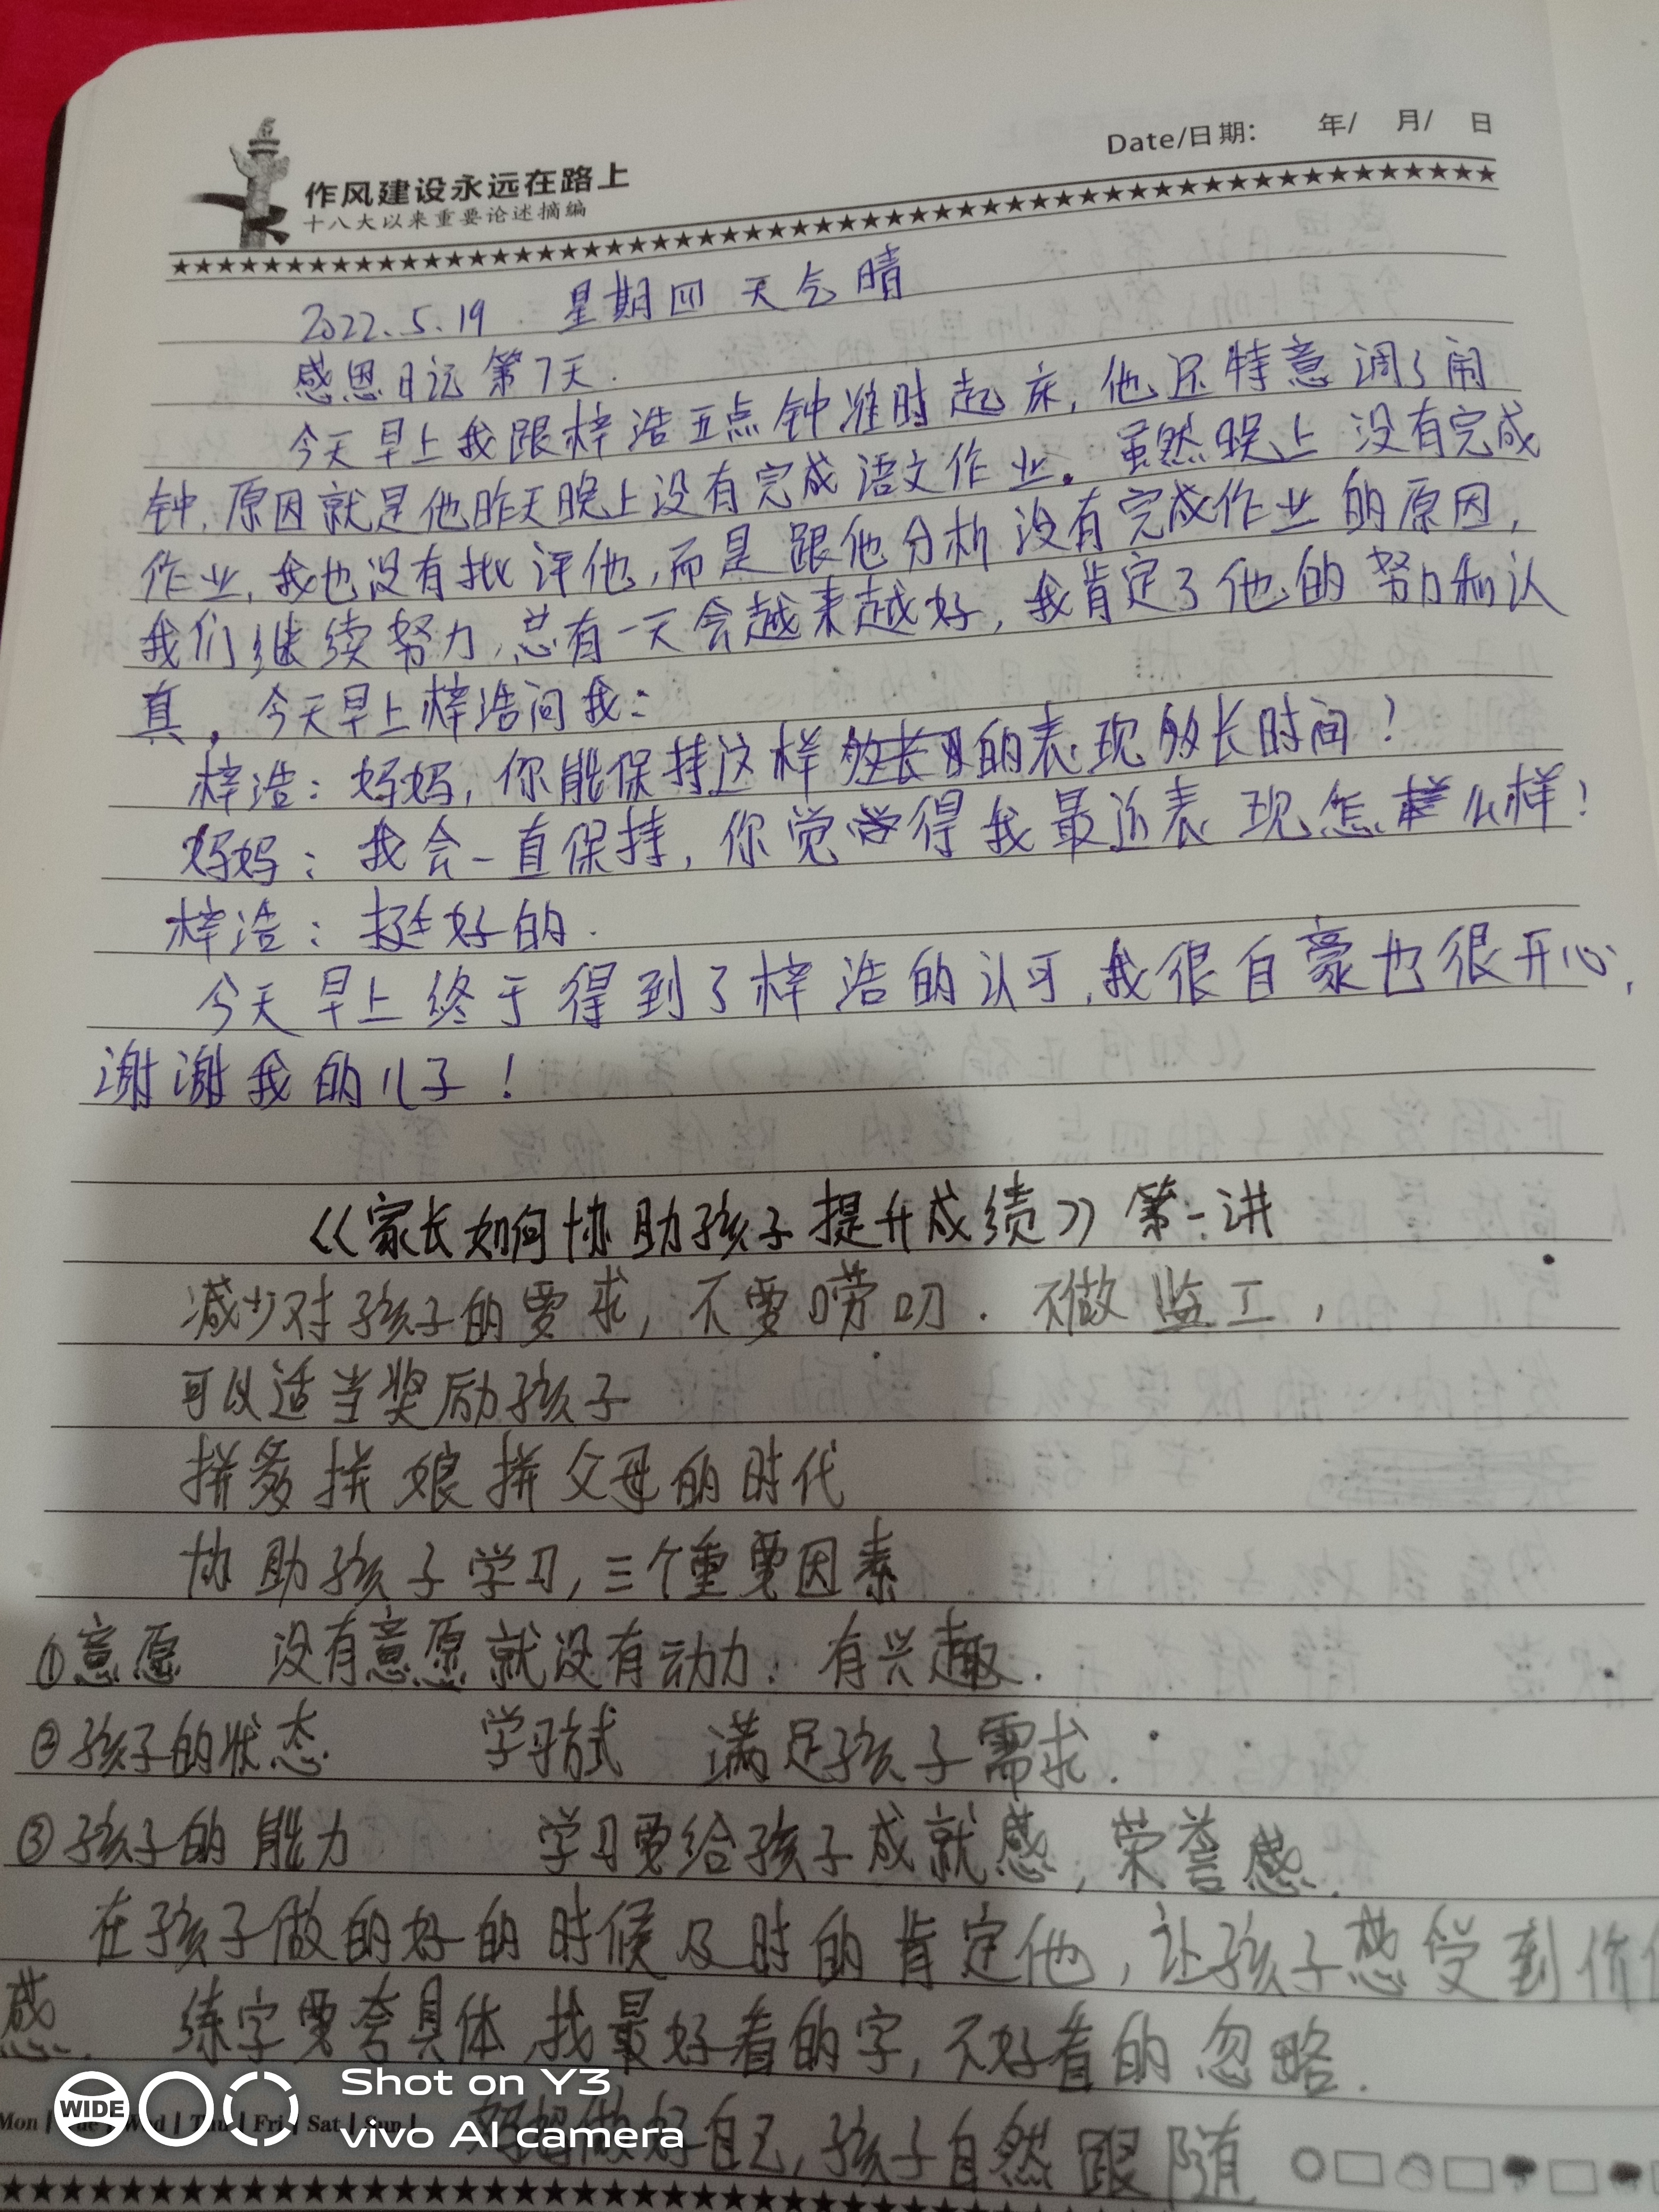 作风建设永远在路上
十八大以来重要论述摘编
Date/日期: 年/ 月/ 日
2022.5.19 星期四 天气晴
感恩日记 第7天.
今天早上我跟梓浩五点钟准时起床,他还特意调了闹
钟,原因就是他昨天晚上没有完成语文作业。虽然晚上没有完成
作业,我也没有批评他,而是跟他分析没有完成作业的原因,
我们继续努力,总有一天会越来越好,我肯定了他的努力和认
真。今天早上梓浩问我:
梓浩:妈妈,你能保持这样的表现多长时间?
妈妈:我会一直保持,你觉得我最近表现怎么样?
梓浩:挺好的.
今天早上终于得到了梓浩的认可,我很自豪也很开心,
谢谢我的儿子!
《家长如何协助孩子提升成绩》第一讲
减少对孩子的要求,不要唠叨.不做监工,
可以适当奖励孩子
拼爹拼娘拼父母的时代
协助孩子学习,三个重要因素
①意愿 没有意愿就没有动力. 有兴趣.
②孩子的状态 学习方式 满足孩子需求.
③孩子的能力 学习要给孩子成就感,荣誉感.
在孩子做的好的时候及时的肯定他,让孩子感受到价
感. 练字要夸具体,找最好看的字,不好看的忽略.
妈妈做好自己,孩子自然跟随
Mon | Tue | Wed | Thu | Fri | Sat | Sun |
WIDE
Shot on Y3
vivo AI camera